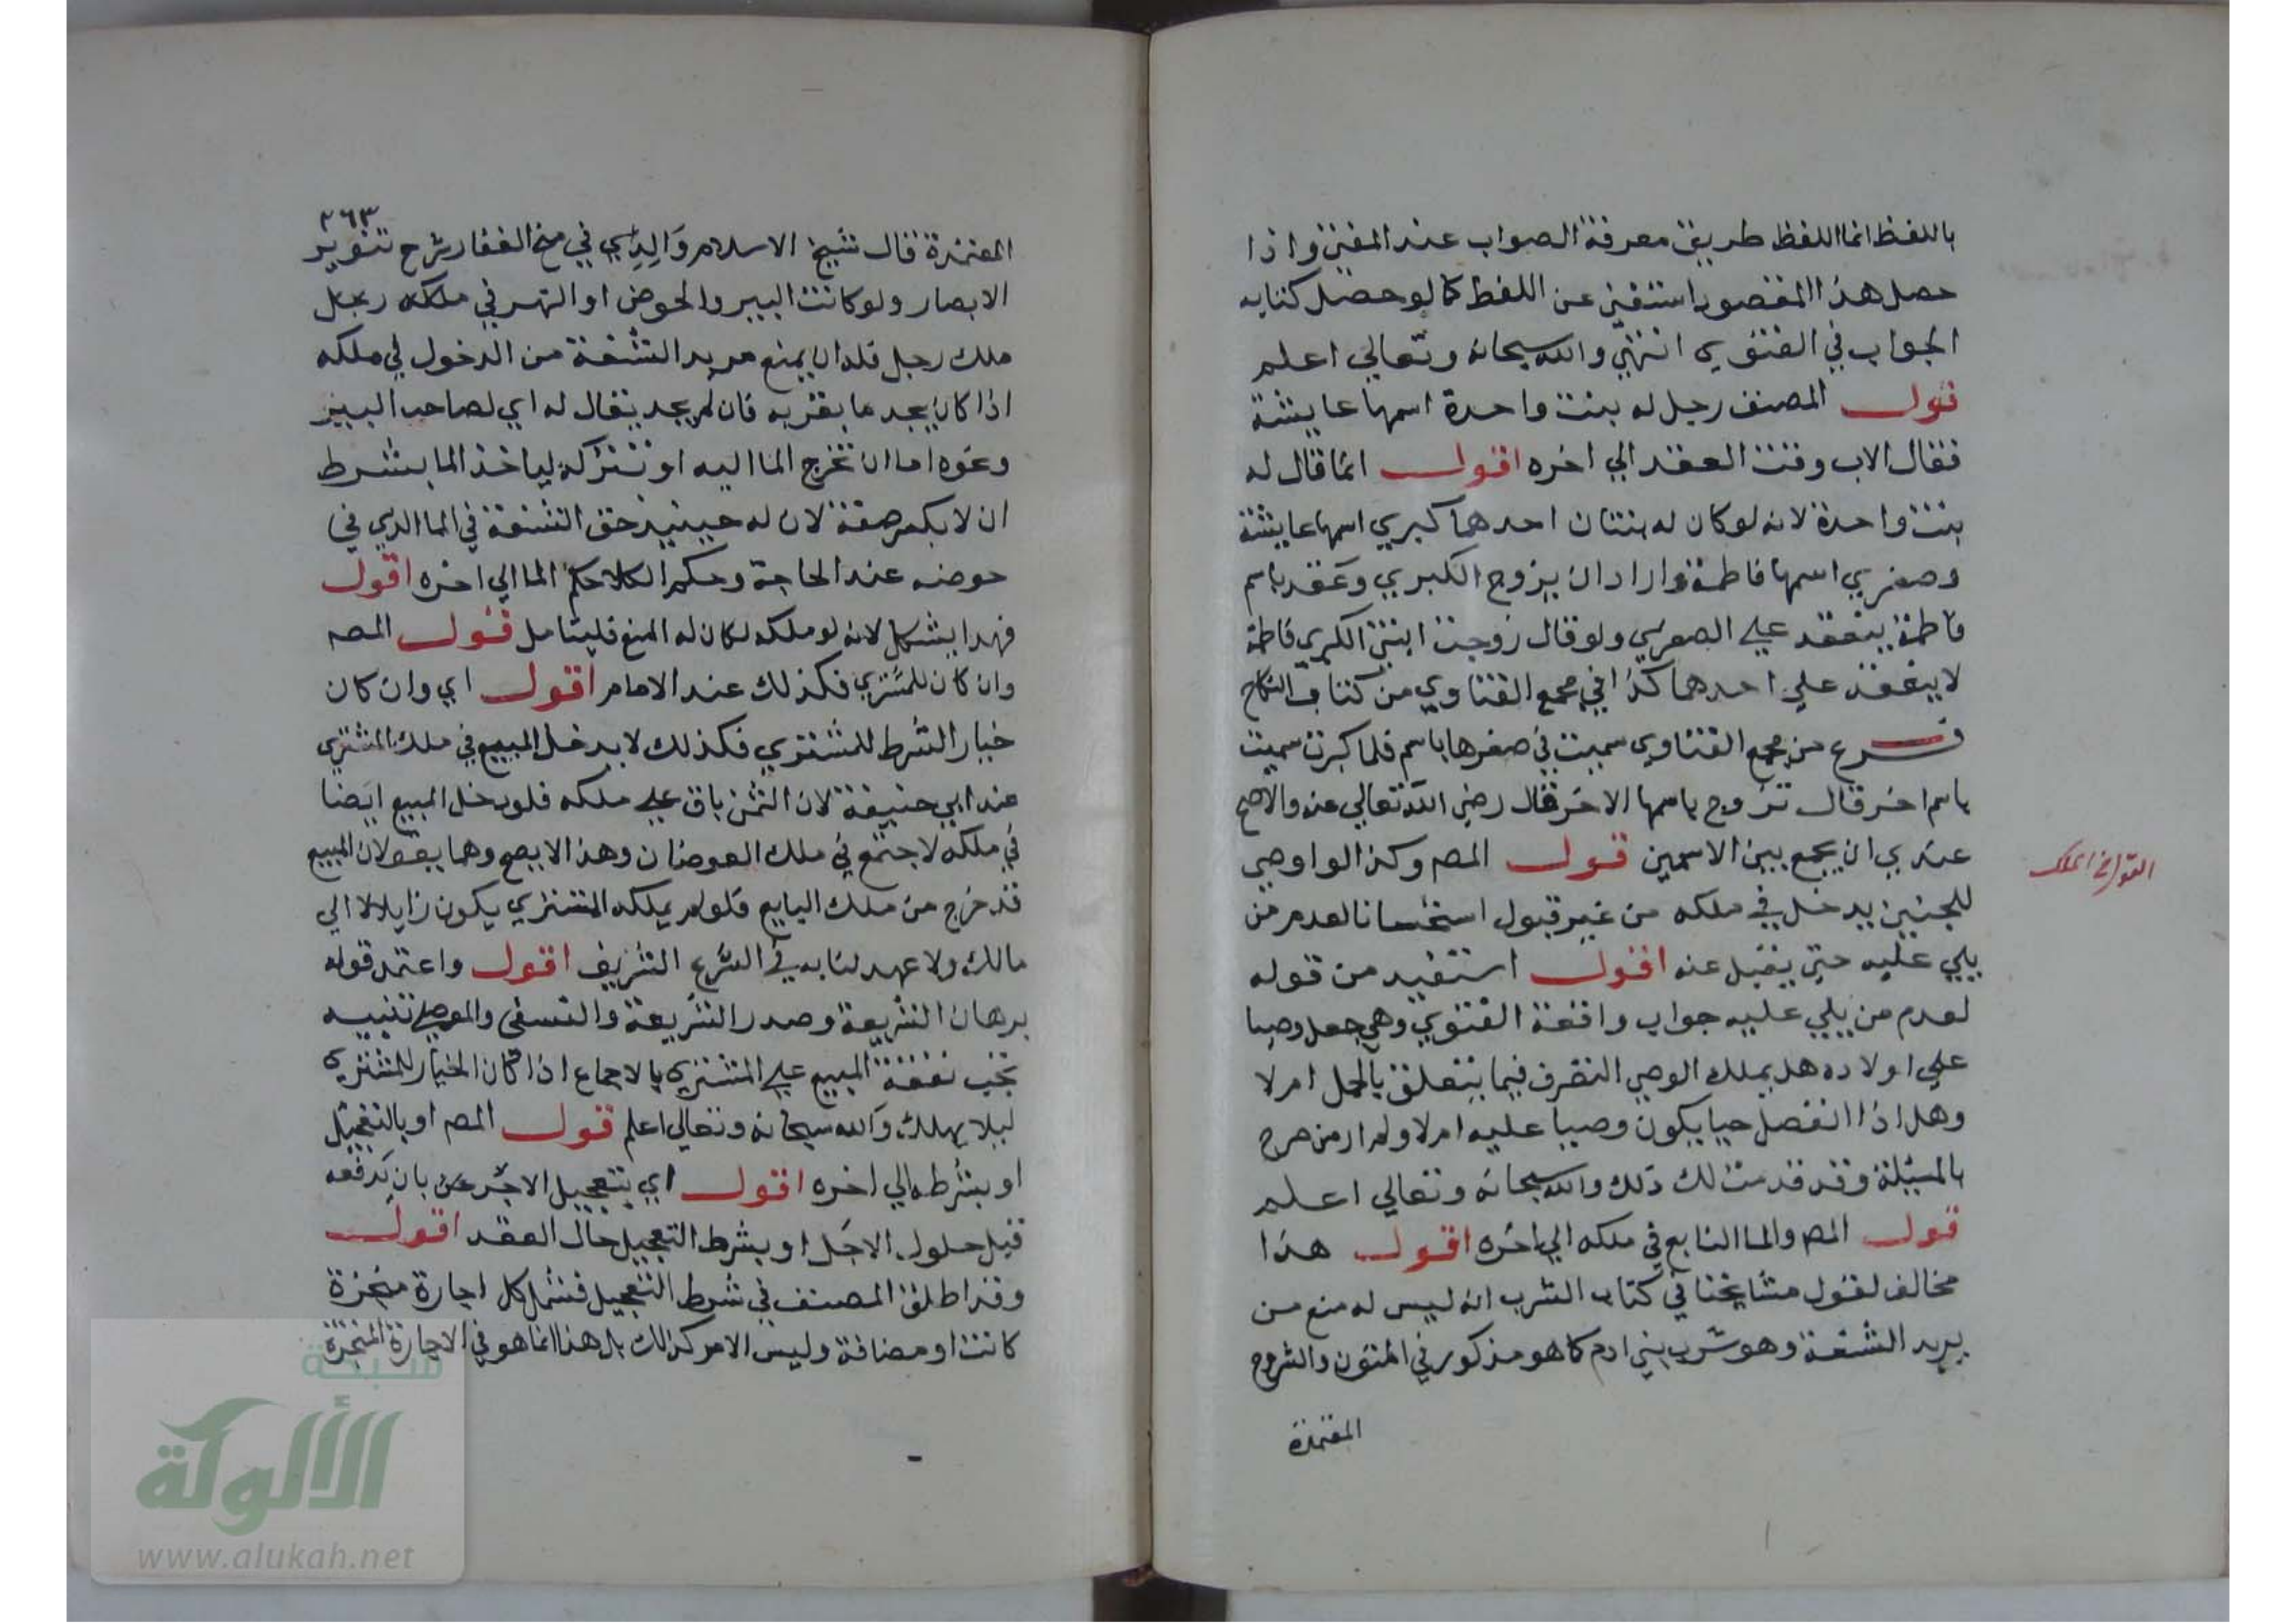 باللفظ انما اللفظ طريق معرفة الصواب عند المفتي واذا
حصل هذا المقصود استغني عن اللفظ كما لو حصل كتابه
الجواب في الفتوي انتهي والله سبحانه وتعالي اعلم
قول المصنف رجل له بنت واحدة اسمها عايشة
فقال الاب وقت العقد الي اخره اقول انما قال له
بنت واحدة لانه لو كان له بنتان احدهما كبري اسمها عايشة
وصغري اسمها فاطمة واراد ان يزوج الكبري وعقد باسم
فاطمة ينعقد علي الصغري ولو قال زوجت ابنتي الكبري فاطمة
لا ينعقد علي احدهما كذا في مجمع الفتاوي من كتاب النكاح
فرع من مجمع الفتاوي سميت في صغرها باسم فلما كبرت سميت
باسم اخر قال تزوج باسمها الاخر قال رضي الله تعالي عنه والاصح
عندي ان يجمع بين الاسمين قول المص وكذا لو اوصي
التواريخ الملك
للجنين يدخل في ملكه من غير قبول استحسانا لعدم من
يلي عليه حتي يقبل عنه اقول استفيد من قوله
لعدم من يلي عليه جواب واقعة الفتوي وهي جعل وصيا
علي اولاده هل يملك الوصي التصرف فيما يتعلق بالحمل ام لا
وهل اذا انفصل حيا يكون وصيا عليه ام لا ولم ار من صرح
بالمسئلة وقد قدمت لك ذلك والله سبحانه وتعالي اعلم
قول المص والما النابع في ملكه الي اخره اقول هذا
مخالف لقول مشايخنا في كتاب الشرب انه ليس له منع من
يريد الشفة وهو شرب بني ادم كما هو مذكور في المتون والشروح
المعتمدة
٣٦٣
المعتمدة قال شيخ الاسلام والدي في منح الغفار شرح تنوير
الابصار ولو كانت البير والحوض او النهر في ملكه رجل
ملك رجل فله ان يمنع مريد الشفة من الدخول في ملكه
اذا كان يجد ما بقربه فان لم يجد يقال له اي لصاحب البير
ونحوه اما ان تخرج الما اليه او تتركه لياخذ الما بشرط
ان لا يكسر ضفة لان له حينيذ حق الشفة في الما الذي في
حوضه عند الحاجة وحكم الكلا حكم الما الي اخره اقول
فهذا يشكل لانه لو ملكه لكان له المنع فليتامل قول المص
وان كان للمشتري فكذلك عند الامام اقول اي وان كان
خيار الشرط للمشتري فكذلك لا يدخل المبيع في ملك المشتري
عند ابي حنيفة لان الثمن باق علي ملكه فلو دخل المبيع ايضا
في ملكه لاجتمع في ملك العوضان وهذا لا يصح وهما يقولان المبيع
قد خرج من ملك البايع فلو لم يملكه المشتري يكون زايلا لا الي
مالك ولا عهد لنا به في الشرع الشريف اقول واعتمد قوله
برهان الشريعة وصدر الشريعة والنسفي والموصلي تنبيه
تجب نفقة المبيع علي المشتري بالاجماع اذا كان الخيار للمشتري
ليلا يهلك والله سبحانه وتعالي اعلم قول المص او بالتعجيل
او بشرطه الي اخره اقول اي بتعجيل الاجر بان يدفعه
قبل حلول الاجل او بشرط التعجيل حال العقد اقول
وقد اطلق المصنف في شرط التعجيل فشمل كل اجارة منجزة
كانت او مضافة وليس الامر كذلك بل هذا انما هو في الاجارة المنجزة
شبكة
الألوكة
www.alukah.net